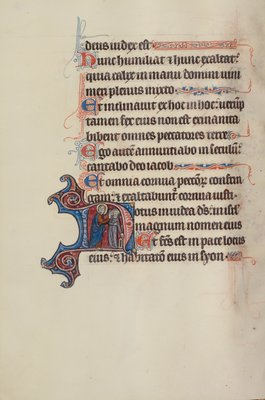 deus iudex est
Hunc humiliat ⁊ hunc exaltat:
quia calix in manu domini uini
meri plenus mixto
Et inclinauit ex hoc in hoc: uerūp
tamen fex eius non est exinanita
bibent omnes peccatores terre
Ego autē annuntiabo in seculū:
cantabo deo iacob
Et omnia cornua peccōr confrin
gam: ⁊ exaltabunt̄ cornua iusti
Notus in iudea ds: in isrl
magnum nomen eius
Et fc̄s est in pace locus
eius: ⁊ habitatō eius in syon